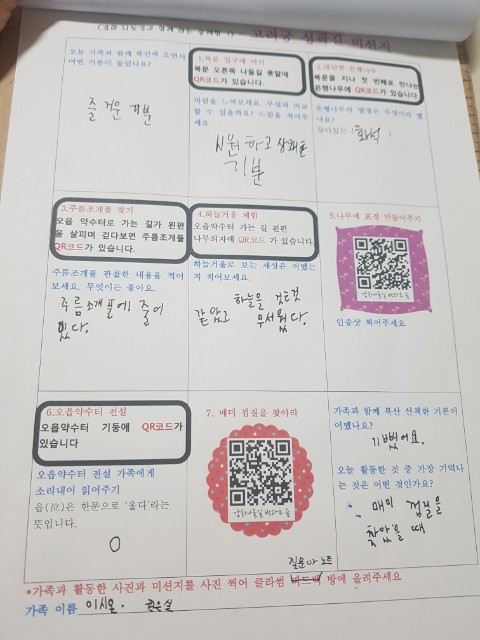 고려궁 성곽길 미션지
오늘 가족과 함께 북산에 오면서
어떤 기분이 들었나요?
즐거운 기분
1.북문 입구에 서서
북문 오른쪽 나들길 푯말에
QR코드가 있습니다.
바람을 느껴보세요. 무엇과 비교
할 수 있을까요? 느낌을 적어주
세요
시원하고 상쾌한
기분
2.대단한 은행나무
북문을 지나 첫 번째로 만나는
은행나무에 QR코드가 있습니다
은행나무의 별명은 무엇이라 했
나요?
살아있는 ( 화석 )
3.주름조개풀 찾기
오읍 약수터로 가는 길가 왼편
을 살피며 걷다보면 주름조개풀
QR코드가 있습니다.
주름조개풀 관찰한 내용을 적어
보세요. 무엇이든 좋아요.
주름조개풀에 줄이
있다.
4.하늘거울 체험
오읍약수터 가는 길 왼편
나무의자에 QR코드 가 있습니다.
하늘거울로 보는 세상은 어땠는
지 적어보세요.
하늘을 걷는것
같았고 무서웠다.
5.나무에 표정 만들어주기
인증샷 찍어주세요
6.오읍약수터 전설
오읍약수터 기둥에 QR코드가
있습니다
오읍약수터 전설 가족에게
소리내어 읽어주기
읍(泣)은 한문으로 '울다'라는
뜻입니다.
O
7. 매미 껍질을 찾아라
가족과 함께 북산 산책한 기분이
어땠나요?
기뻤어요.
오늘 활동한 것 중 가장 기억나
는 것은 어떤 것인가요?
매미 껍질을
찾았을 때
질문아 노트
*가족과 활동한 사진과 미션지를 사진 찍어 클라썸 방에 올려주세요
가족 이름 이시온.